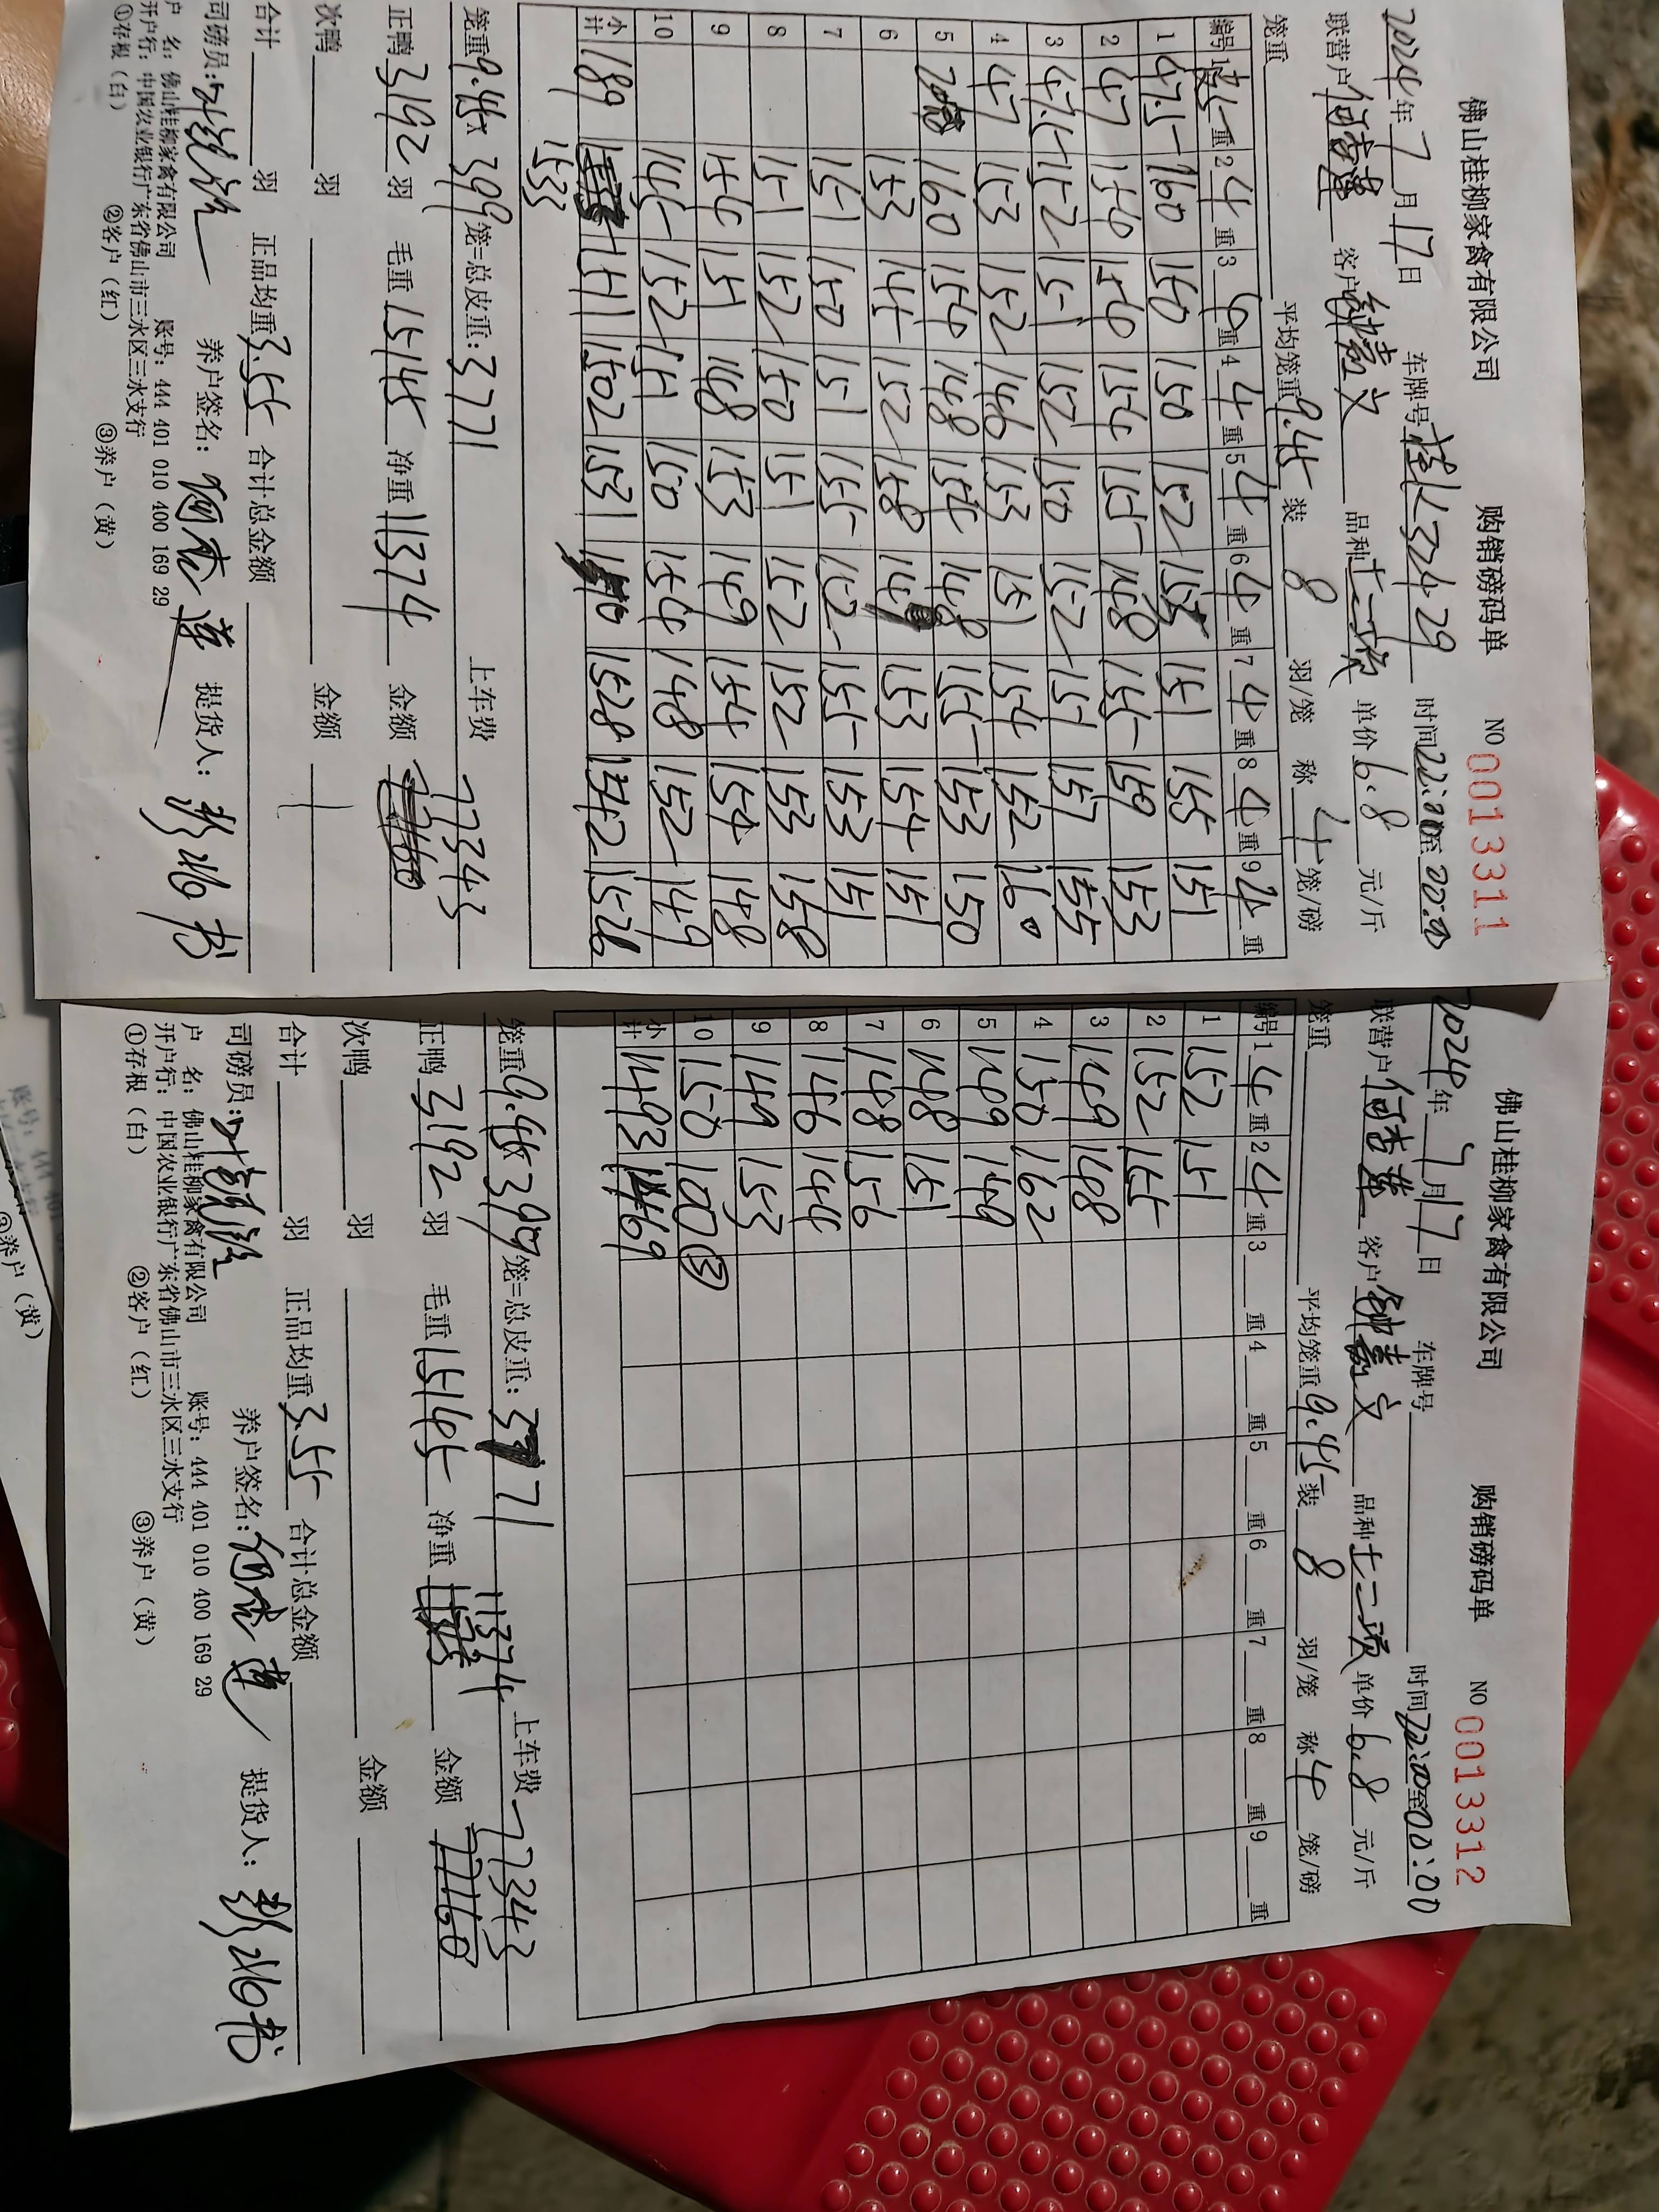 佛山桂柳家禽有限公司 购销磅码单 NO 0013311
2024年7月17日 车牌号 桂K32429 时间22:00至00:00
联营户 客户 品种 单价6.8元/斤
笼重 平均笼重9.45 装8羽/笼 称4笼/磅
编号 1 重 2 4 重 3 4 重 4 4 重 5 4 重 6 4 重 7 4 重 8 4 重 9 4 重
1 47.5 160 150 150 152 155 151 155 151
2 47 154 154 154 155 148 155 159 153
3 47.5 152 151 152 150 152 151 157 155
4 47 153 152 146 153 151 154 152 160
5 160 154 148 154 148 155 153 150
6 153 145 152 158 149 153 154 151
7 151 150 151 155 152 155 153 151
8 151 152 150 151 152 152 153 158
9 154 151 148 153 149 154 154 148
10 145 152 151 150 154 148 152 149
小计 189 1511 1502 1531 1510 1528 1542 1526
1533
笼重9.45x399笼=总皮重:3771 上车费 77343
正鸭3192羽 毛重15145 净重11374 金额
次鸭 羽 金额
合计 羽 正品均重3.55 合计总金额
司磅员: 养户签名: 提货人:
户 名: 佛山桂柳家禽有限公司 账号: 444 401 010 400 169 29
开户行: 中国农业银行广东省佛山市三水区三水支行
①存根(白) ②客户(红) ③养户(黄)
佛山桂柳家禽有限公司 购销磅码单 NO 0013312
2024年7月17日 车牌号 时间22:00至00:00
联营户 客户 品种 单价6.8元/斤
笼重 平均笼重9.45 装8羽/笼 称4笼/磅
编号 1 4 重 2 4 重 3 重 4 重 5 重 6 重 7 重 8 重 9 重
1 152 151
2 152 155
3 149 148
4 150 162
5 149 149
6 148 151
7 148 156
8 146 144
9 149 153
10 150 100③
小计 1493 1469
笼重9.45x399笼=总皮重: 3771 11374 上车费 77343
正鸭3192羽 毛重15145 净重 金额
次鸭 羽 金额
合计 羽 正品均重3.55 合计总金额
司磅员: 养户签名: 提货人:
户 名: 佛山桂柳家禽有限公司 账号: 444 401 010 400 169 29
开户行: 中国农业银行广东省佛山市三水区三水支行
①存根(白) ②客户(红) ③养户(黄)
③养户(黄)